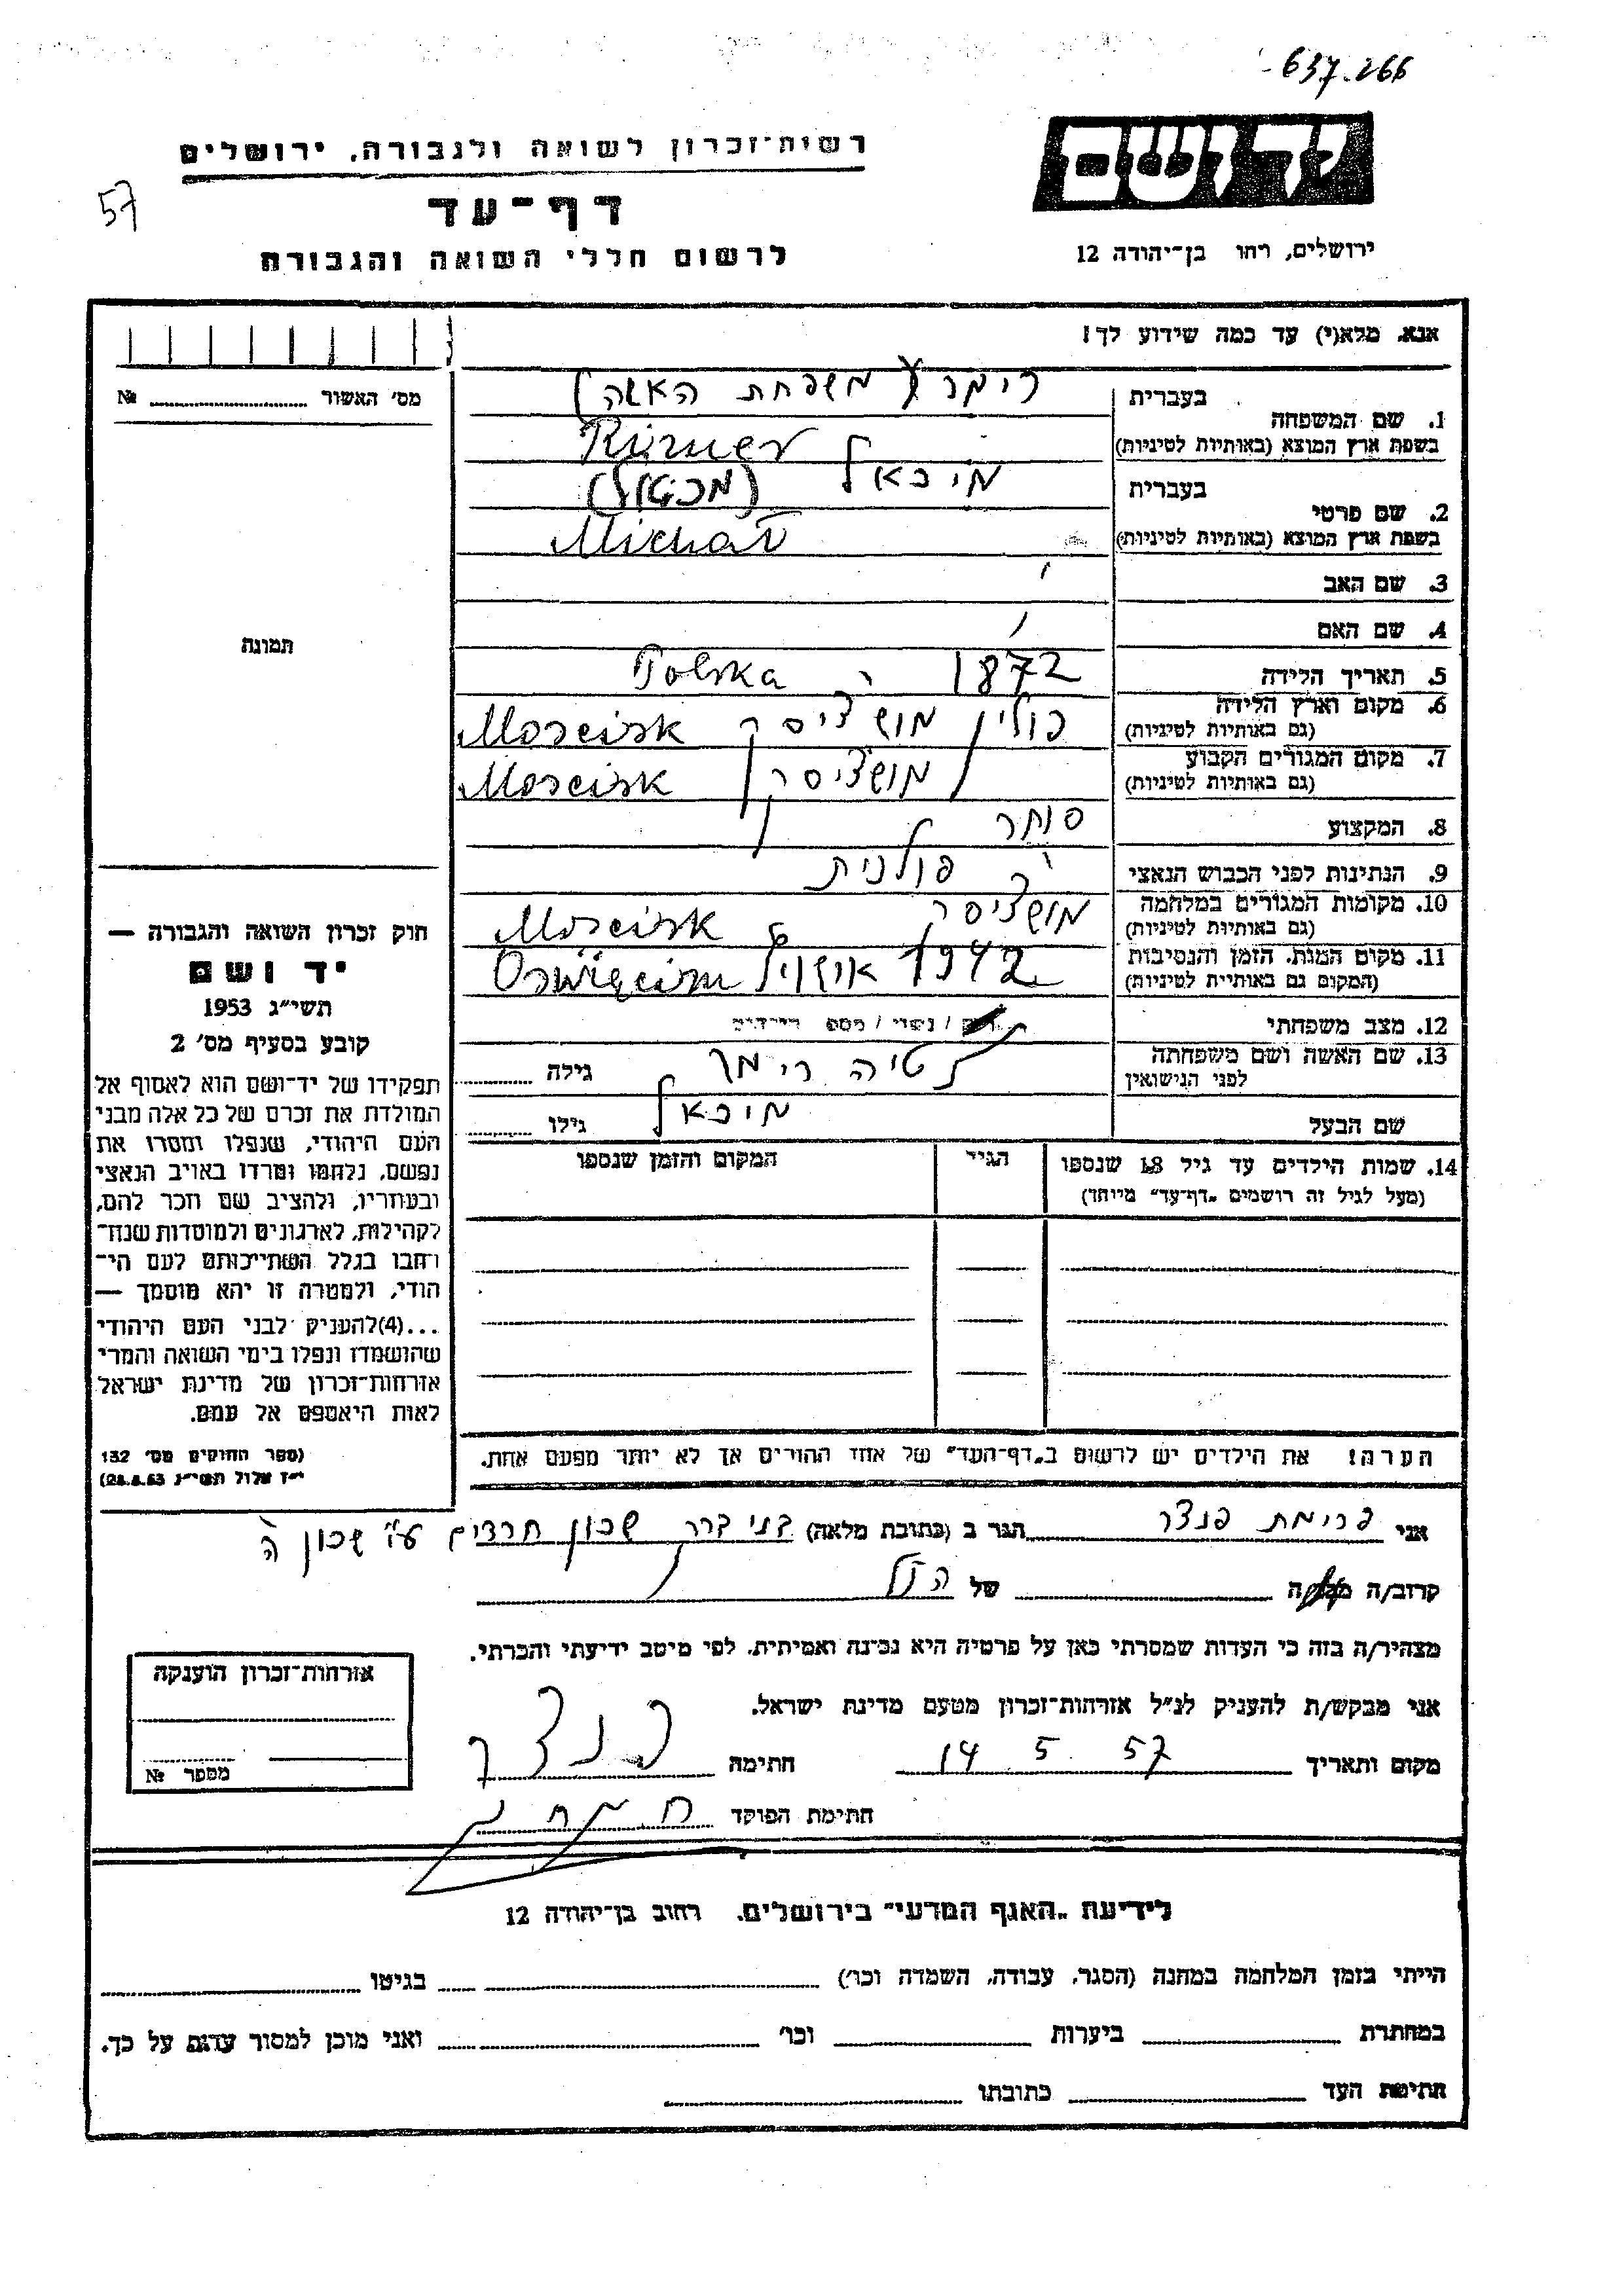 637.266
רשות-זכרון לשואה ולגבורה, ירושלים
יד ושם
57
דף-עד
לרשום חללי השואה והגבורה
ירושלים, רחו בן-יהודה 12
אנא, מלא(י) עד כמה שידוע לך!
מס' האשור №
1. שם המשפחה
בעברית
משפחת האשה
בשפת ארץ המוצא (באותיות לטיניות)
Rümer
2. שם פרטי
בעברית
מיכאל
בשפת ארץ המוצא (באותיות לטיניות)
Michał
3. שם האב
4. שם האם
תמונה
5. תאריך הלידה 1872 Polska
6. מקום וארץ הלידה
(גם באותיות לטיניות)
פולין מושציסק Mościsk
7. מקום המגורים הקבוע
(גם באותיות לטיניות)
מושציסק Mościsk
8. המקצוע סוחר
9. הנתינות לפני הכבוש הנאצי פולנית
10. מקומות המגורים במלחמה
(גם באותיות לטיניות)
מושציסק Mościsk
11. מקום המות, הזמן והנסיבות
(המקום גם באותיות לטיניות)
1942 Oświęcim
12. מצב משפחתי
נשוי / מספ הילדים
13. שם האשה ושם משפחתה
לפני הנישואין
גילה
שם הבעל מיכאל גילו
14. שמות הילדים עד גיל 18 שנספו
(מעל לגיל זה רושמים "דף-עד" מיוחד)
הגיל
המקום והזמן שנספו
הערה! את הילדים יש לרשום ב"דף-העד" של אחד ההורים אך לא יותר מפעם אחת.
חוק זכרון השואה והגבורה —
יד ושם
תשי"ג 1953
קובע בסעיף מס' 2
תפקידו של יד-ושם הוא לאסוף אל
המולדת את זכרם של כל אלה מבני
העם היהודי, שנפלו ומסרו את
נפשם, נלחמו ומרדו באויב הנאצי
ובעוזריו, ולהציב שם וזכר להם,
לקהילות, לארגונים ולמוסדות שנח-
רבו בגלל השתייכותם לעם הי-
הודי, ולמטרה זו יהא מוסמך —
...(4)להעניק לבני העם היהודי
שהושמדו ונפלו בימי השואה והמרי
אזרחות-זכרון של מדינת ישראל
לאות היאספם אל עמם.
(ספר החוקים מס' 132
י"ז אלול תשי"ג 28.8.53)
אני פנצר הגר ב (כתובת מלאה) בני ברק שכון חרדים שכון ה'
קרוב/ה של הנ"ל
מצהיר/ה בזה כי העדות שמסרתי כאן על פרטיה היא נכונה ואמיתית, לפי מיטב ידיעתי והכרתי.
אני מבקש/ת להעניק לנ"ל אזרחות-זכרון מטעם מדינת ישראל.
מקום ותאריך 14 5 57 חתימה
חתימת הפוקד
אזרחות-זכרון הוענקה
מספר №
לידיעת "האגף המדעי" בירושלים, רחוב בן-יהודה 12
הייתי בזמן המלחמה במחנה (הסגר, עבודה, השמדה וכו') בגיטו
במחתרת ביערות וכו' ואני מוכן למסור עדות על כך.
חתימת העד כתובתו